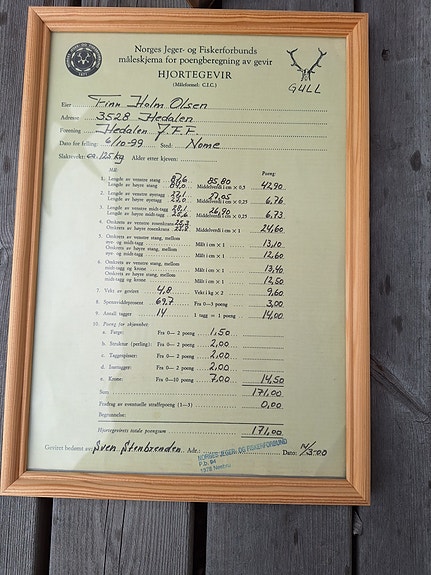 Norges Jeger- og Fiskerforbunds
måleskjema for poengberegning av gevir
HJORTEGEVIR
(Måleformel: C.I.C.)
GULL
Eier Finn Holm Olsen
Adresse 3528 Hedalen
Forening Hedalen J.F.F.
Dato for felling: 6/10-99 Sted: Nome
Slaktevekt: ca. 125 kg Alder etter kjeven:
Mål: Poeng:
1. Lengde av venstre stang 87,6 85,80
Lengde av høyre stang 84,0 Middelverdi i cm × 0,5 42,90
2. Lengde av venstre øyetagg 27,1 27,05
Lengde av høyre øyetagg 27,0 Middelverdi i cm × 0,25 6,76
3. Lengde av venstre midt-tagg 28,1 26,90
Lengde av høyre midt-tagg 25,6 Middelverdi i cm × 0,25 6,73
4. Omkrets av venstre rosenkrans
Omkrets av høyre rosenkrans Middelverdi i cm × 1 24,60
5. Omkrets av venstre stang, mellom
øye- og midt-tagg Målt i cm × 1 13,10
Omkrets av høyre stang, mellom
øye- og midt-tagg Målt i cm × 1 12,60
6. Omkrets av venstre stang, mellom
midt-tagg og krone Målt i cm × 1 13,40
Omkrets av høyre stang, mellom
midt-tagg og krone Målt i cm × 1 12,50
7. Vekt av geviret 4,8 Vekt i kg × 2 9,60
8. Spennviddeprosent 69,7 Fra 0—3 poeng 3,00
9. Antall tagger 14 1 tagg = 1 poeng 14,00
10. Poeng for skjønnhet:
a. Farge: Fra 0— 2 poeng 1,50
b. Struktur (perling): Fra 0— 2 poeng 2,00
c. Taggespisser: Fra 0— 2 poeng 2,00
d. Isetagger: Fra 0— 2 poeng 2,00
e. Krone: Fra 0—10 poeng 7,00 14,50
Sum 171,00
Fradrag av eventuelle straffepoeng (1—3) 0,00
Begrunnelse:
Hjortegevirets totale poengsum 171,00
Geviret bedømt av: Sven Stenbrenden Adr.: Dato: 14/3-00
NORGES JEGER- OG FISKERFORBUND
P.b. 94
1378 Nesbru